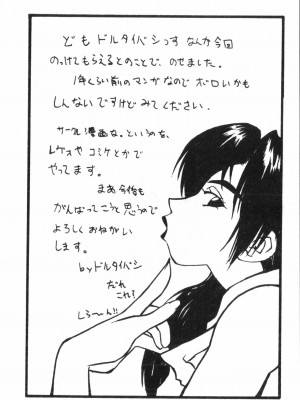 ども ドルタイバシっす なんか今回
のっけてもらえるとのことで、のせました。
1年くらい前のマンガなので ボロいかも
しんないですけど みてください.
サークル漫画な。というのな、
レヴォや コミケとかで
やってます。
まあ 今後も
がんばってこうと 思うので
よろしく おねがい
します。
by ドルタイバシ
だれ
これ?
しら〜ん!!